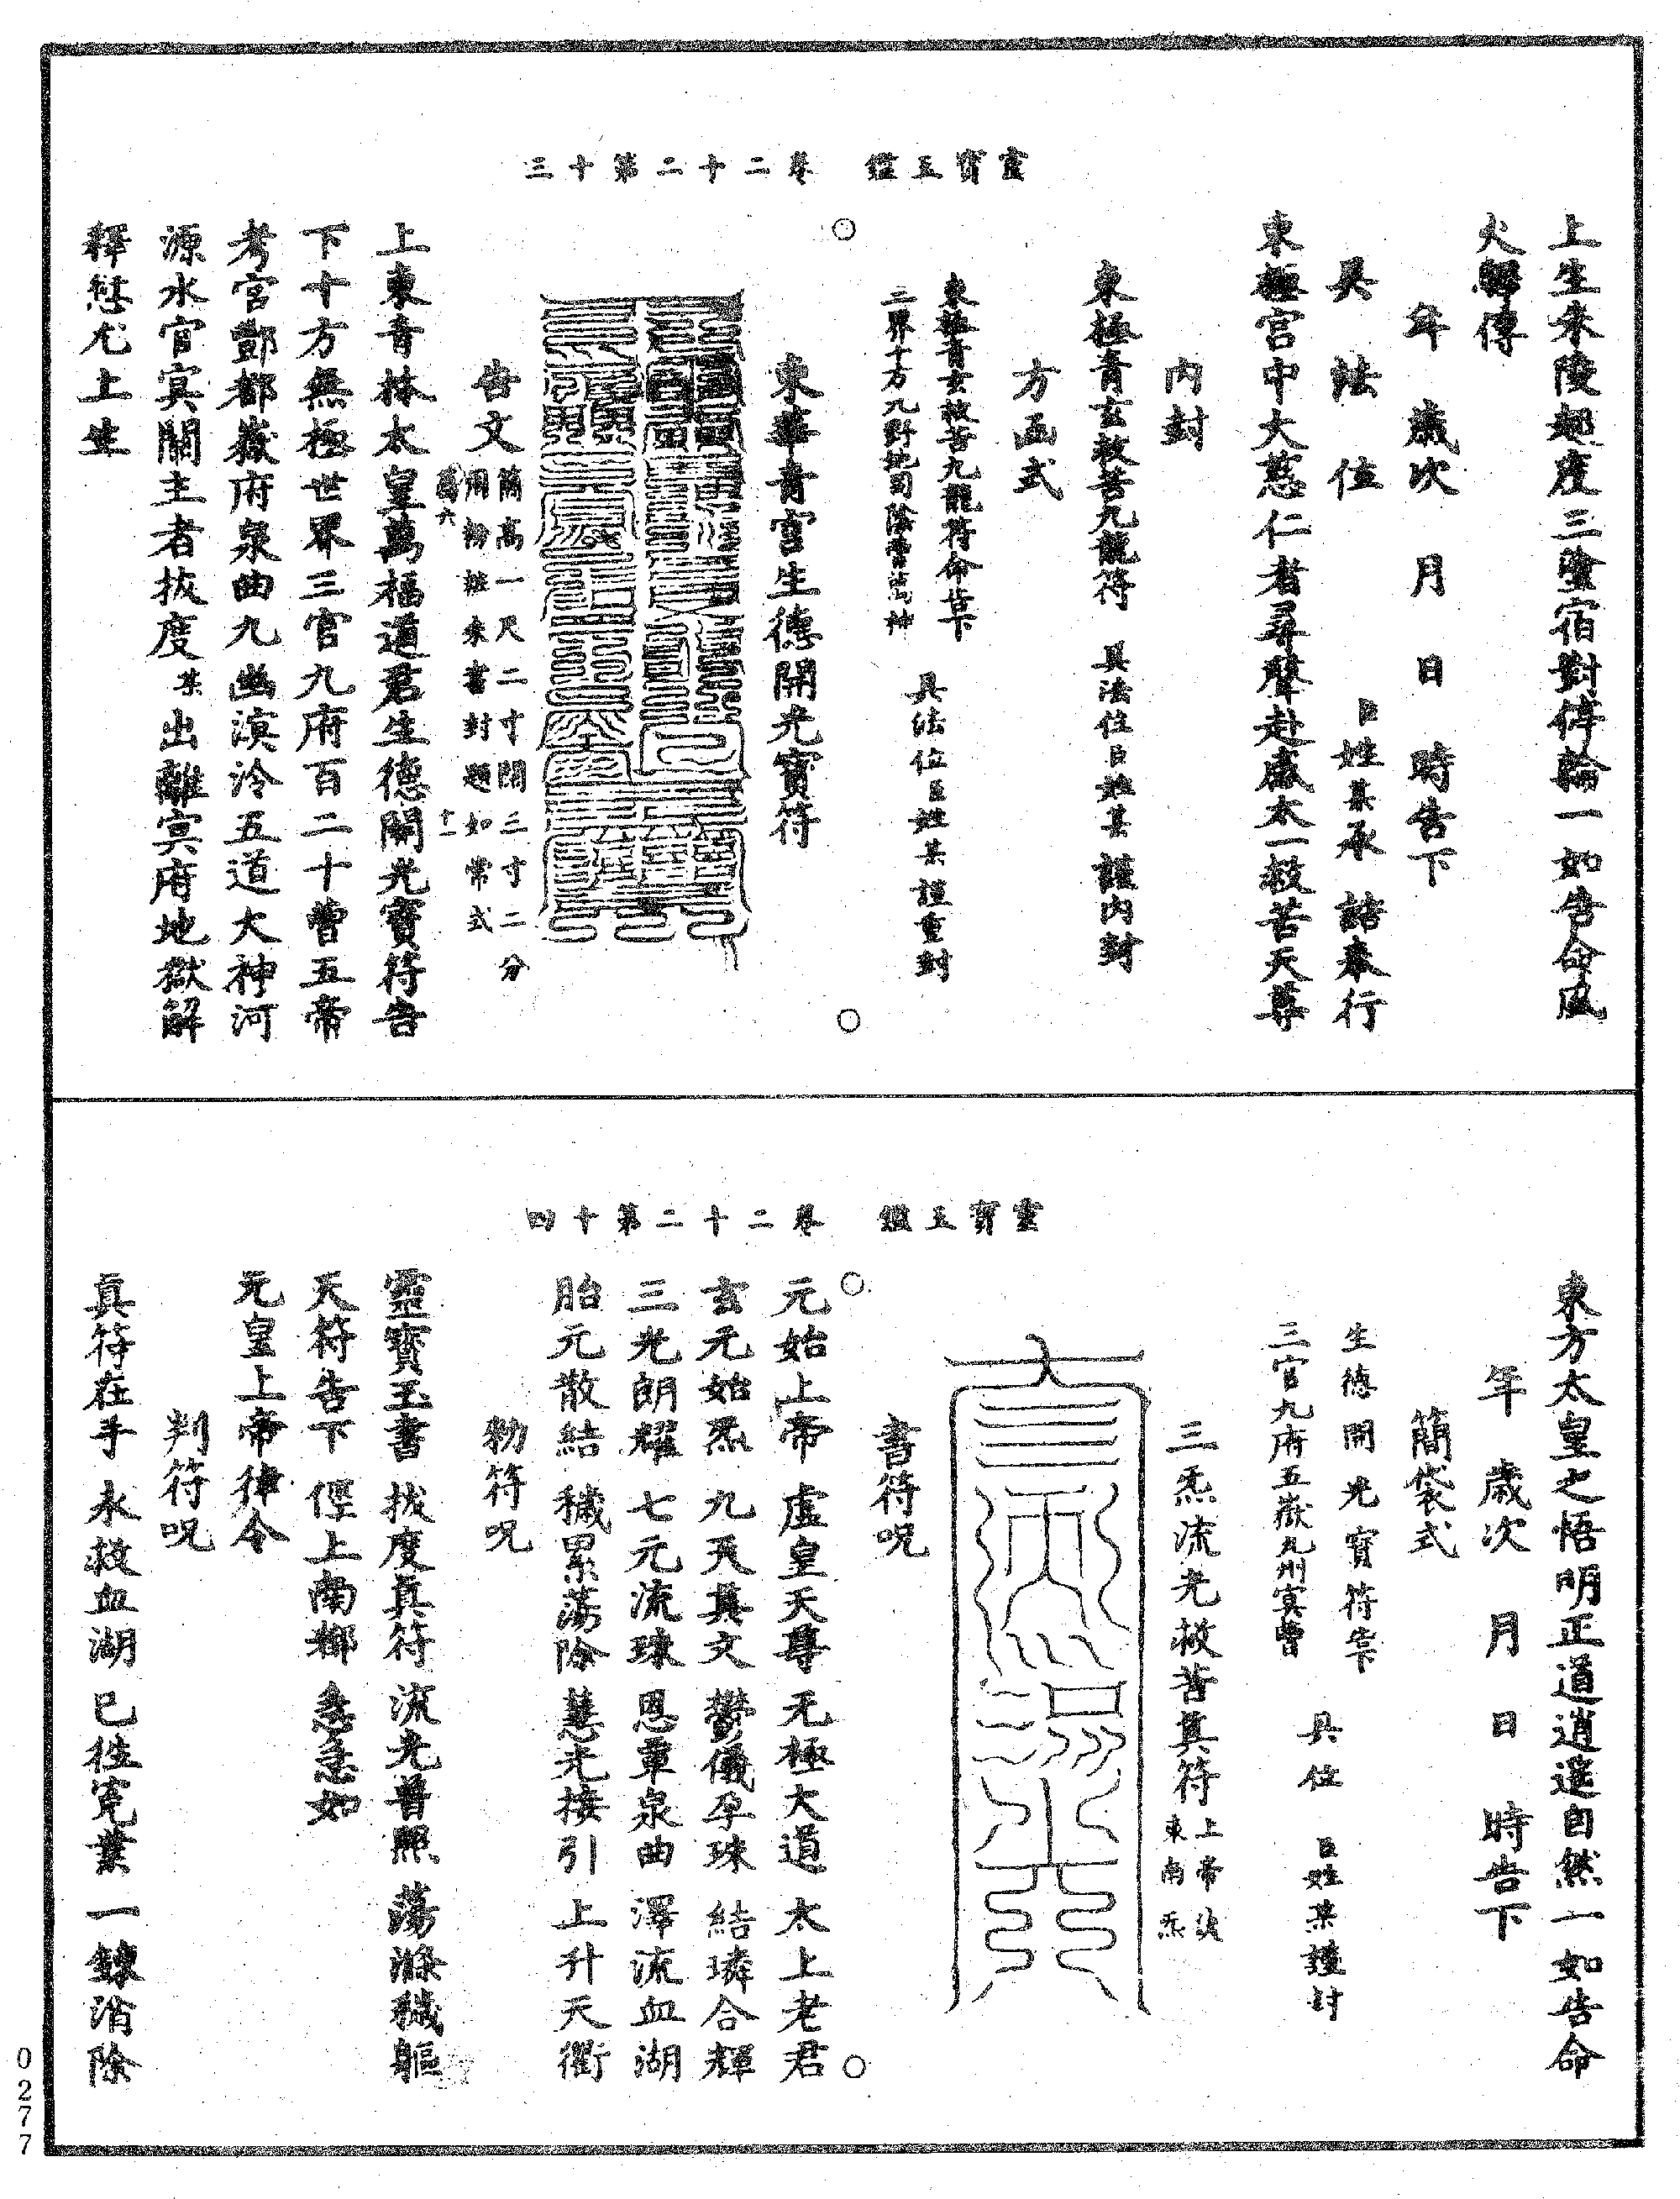 靈寶玉鑑　卷二十二第十三
上生朱陵超度三塗宿對停輪一如告命風
火驛傳
年　歲次　月　日　時告下
具　法　位　臣姓某承　誥奉行
東極宮中大慈仁者尋聲赴感太一救苦天尊
內封
東極青玄救苦九龍符　具法位臣姓某　謹內封
方函式
東極青玄救苦九龍符命告下
三界十方九野地司陰曹萬神　具法位臣姓某謹重封
東華青宮生德開光寶符
告文簡高一尺二寸闊三寸二分
用粉粧朱書封題如常式
上東青林太皇萬福道君生德開光寶符告
下十方無極世界三官九府百二十曹五帝
考官酆都嶽府泉曲九幽溟泠五道大神河
源水官冥關主者拔度某出離冥府地獄解
釋愆尤上生
靈寶玉鑑　卷二十二第十四
東方太皇之悟明正道逍遙自然一如告命
年　歲次　月　日　時告下
簡袋式
生德開光寶符告下
三官九府五嶽九州冥曹　具位　臣姓某謹封
三炁流光救苦真符上帝
東南炁
書符呪
元始上帝　虛皇天尊　元極大道　太上老君
玄元始炁　九天真文　鬱儀孕珠　結璘合輝
三光朗耀　七元流珠　恩覃泉曲　澤流血湖
胎元散結　穢累蕩除　慧光接引　上升天衢
勑符呪
靈寶玉書　拔度真符　流光普照　蕩滌穢軀
天符告下　徑上南都　急急如
元皇上帝律令
判符呪
真符在手　永救血湖　已往冤業　一鍊消除
0277